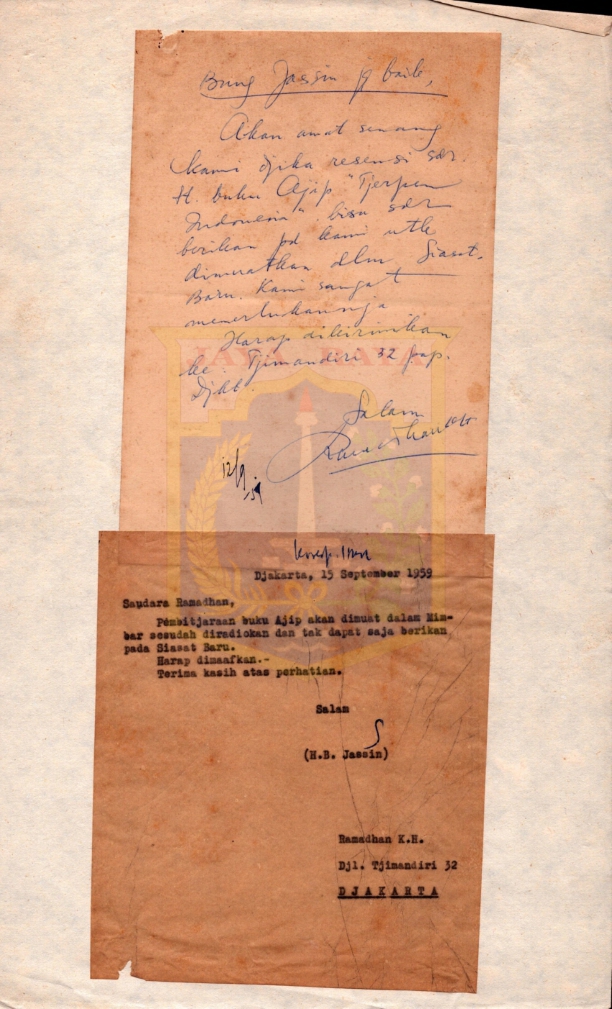 Bung Jassin jg baik,
Akan amat senang
kami djika resensi sdr.
H. buku Ajip "Tjerpen
Indonesia" bisa sdr
berikan pd kami utk
dimuatkan dlm Siasat
Baru. Kami sangat
memerlukannja
Harap dikirimkan
ke: Tjimandiri 32 pap.
Djkt.
Salam
Ramadhan KH
12/9 '59
JAYA RAYA
Djakarta, 15 September 1959
Saudara Ramadhan,
Pembitjaraan buku Ajip akan dimuat dalam Mim-
bar sesudah diradiokan dan tak dapat saja berikan
pada Siasat Baru.
Harap dimaafkan.-
Terima kasih atas perhatian.
Salam
(H.B. Jassin)
Ramadhan K.H.
Djl. Tjimandiri 32
DJAKARTA